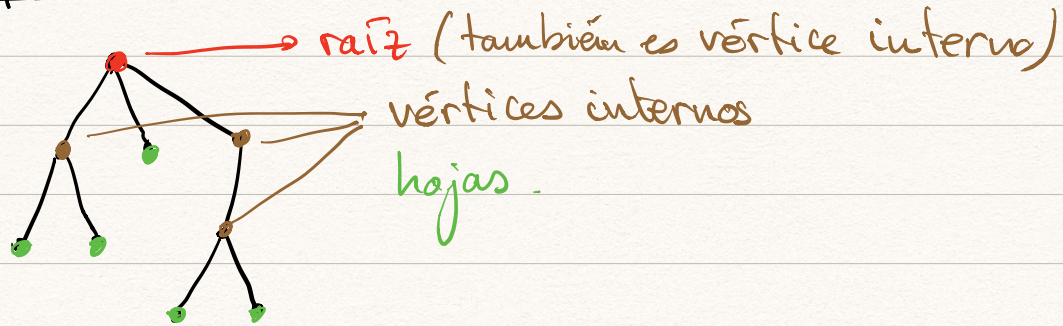 raíz (también es vértice interno)
vértices internos
hojas.